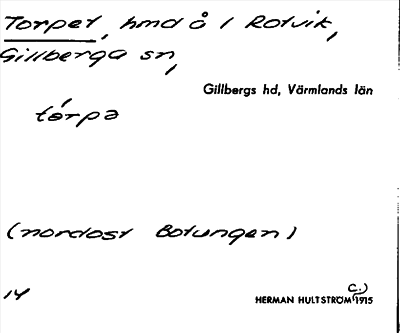 Torpet, hmd å 1 Rotvik,
Gillberga sn,
Gillbergs hd, Värmlands län
tórpa
(nordost Botungen)
14
HERMAN HULTSTRÖM c.) 1915